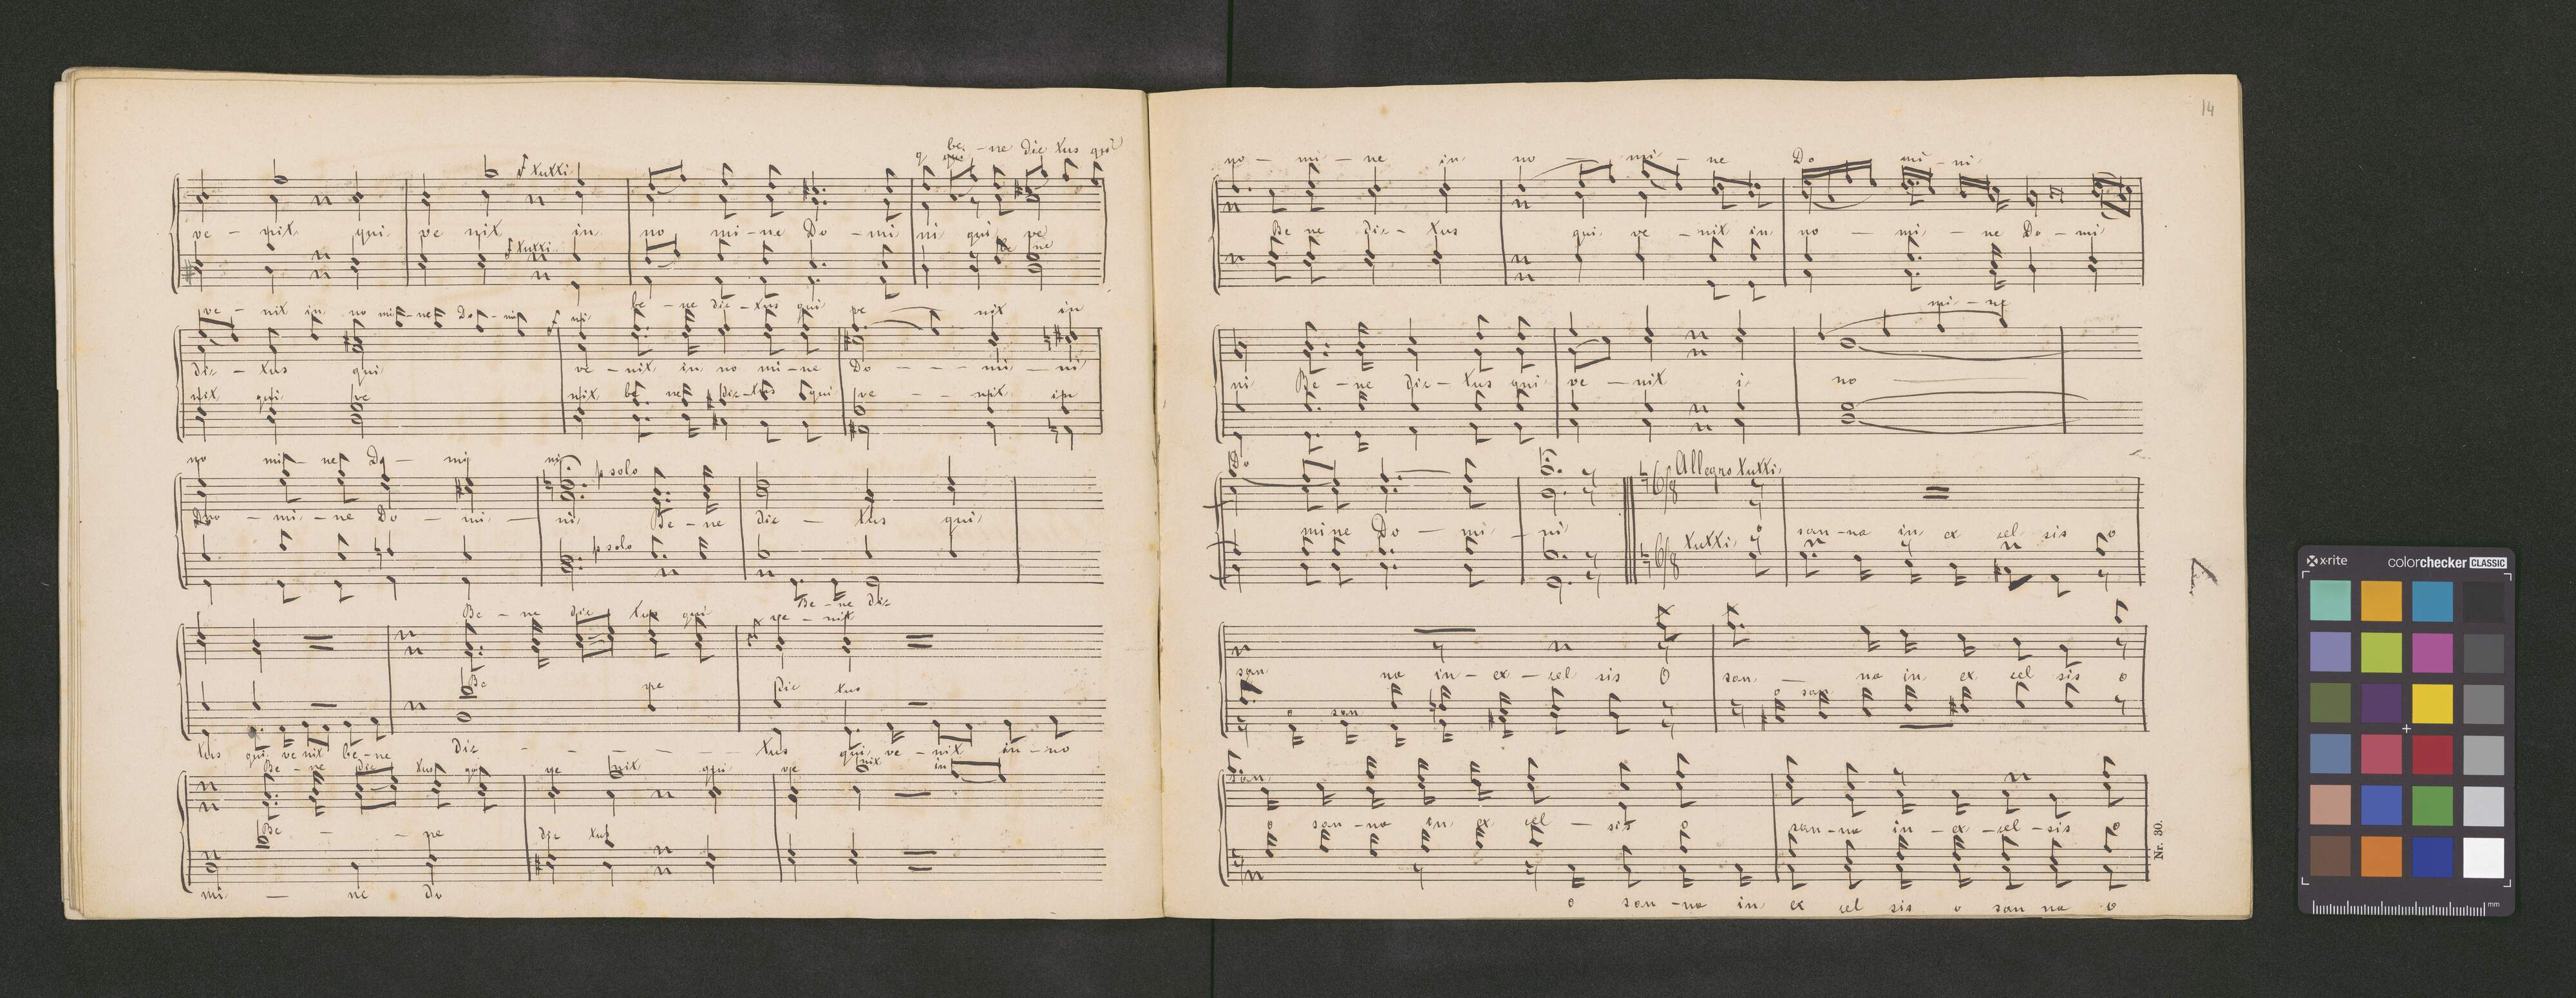 be - ne dic tus qui
f tutti
ve - nit qui ve nit in no mi - ne Do - mi ni qui ve
f tutti
be ne
ve - nit in no mi - ne Do - mi ni be - ne dic - tus qui ve nit in
dic - tus qui ve - nit in no mi - ne Do - - - mi - ni
nit qui ve nit be ne dic - tus qui ve - - nit in
no mi - ne Do - mi ni p solo
mi - ne Do - mi - ni Be - ne dic - tus qui
p solo
Be - ne dic
Be - ne dic tus qui ve - nit
Be ne dic tus
tus qui ve nit be - ne dic - - - - - - tus qui ve - nit in - no
Be - ne dic tus qui ve nit qui ve nix in
Be - - ne dic tus
mi - ne do
14
no - mi - ne in no - mi - ne Do mi - ni
Be ne dic - tus qui ve - nit in no - mi - ne Do - mi
mi - ne
ni Be - ne dic - tus qui ve - nit i no
Do Allegro tutti
6/8
mi ne Do - mi - ni tutti san - na in ex cel sis o
6/8
san na in - ex - cel sis O san - na in ex cel sis o
o san o san
san
o san - na in ex cel - sis o san - na in - ex - cel - sis o
o san - na in ex cel sis o san na o
Nr. 30.
x-rite colorchecker CLASSIC
mm